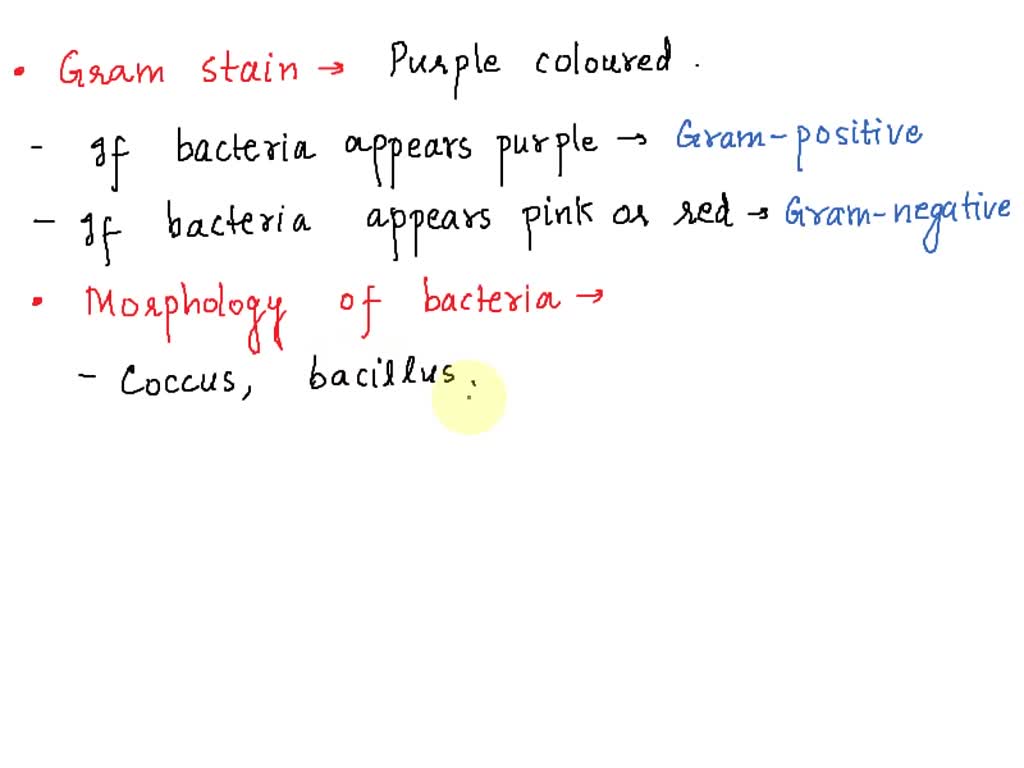 • Gram stain → Purple coloured.
- If bacteria appears purple → Gram-positive
- If bacteria appears pink or red → Gram-negative
• Morphology of bacteria →
- Coccus, bacillus.